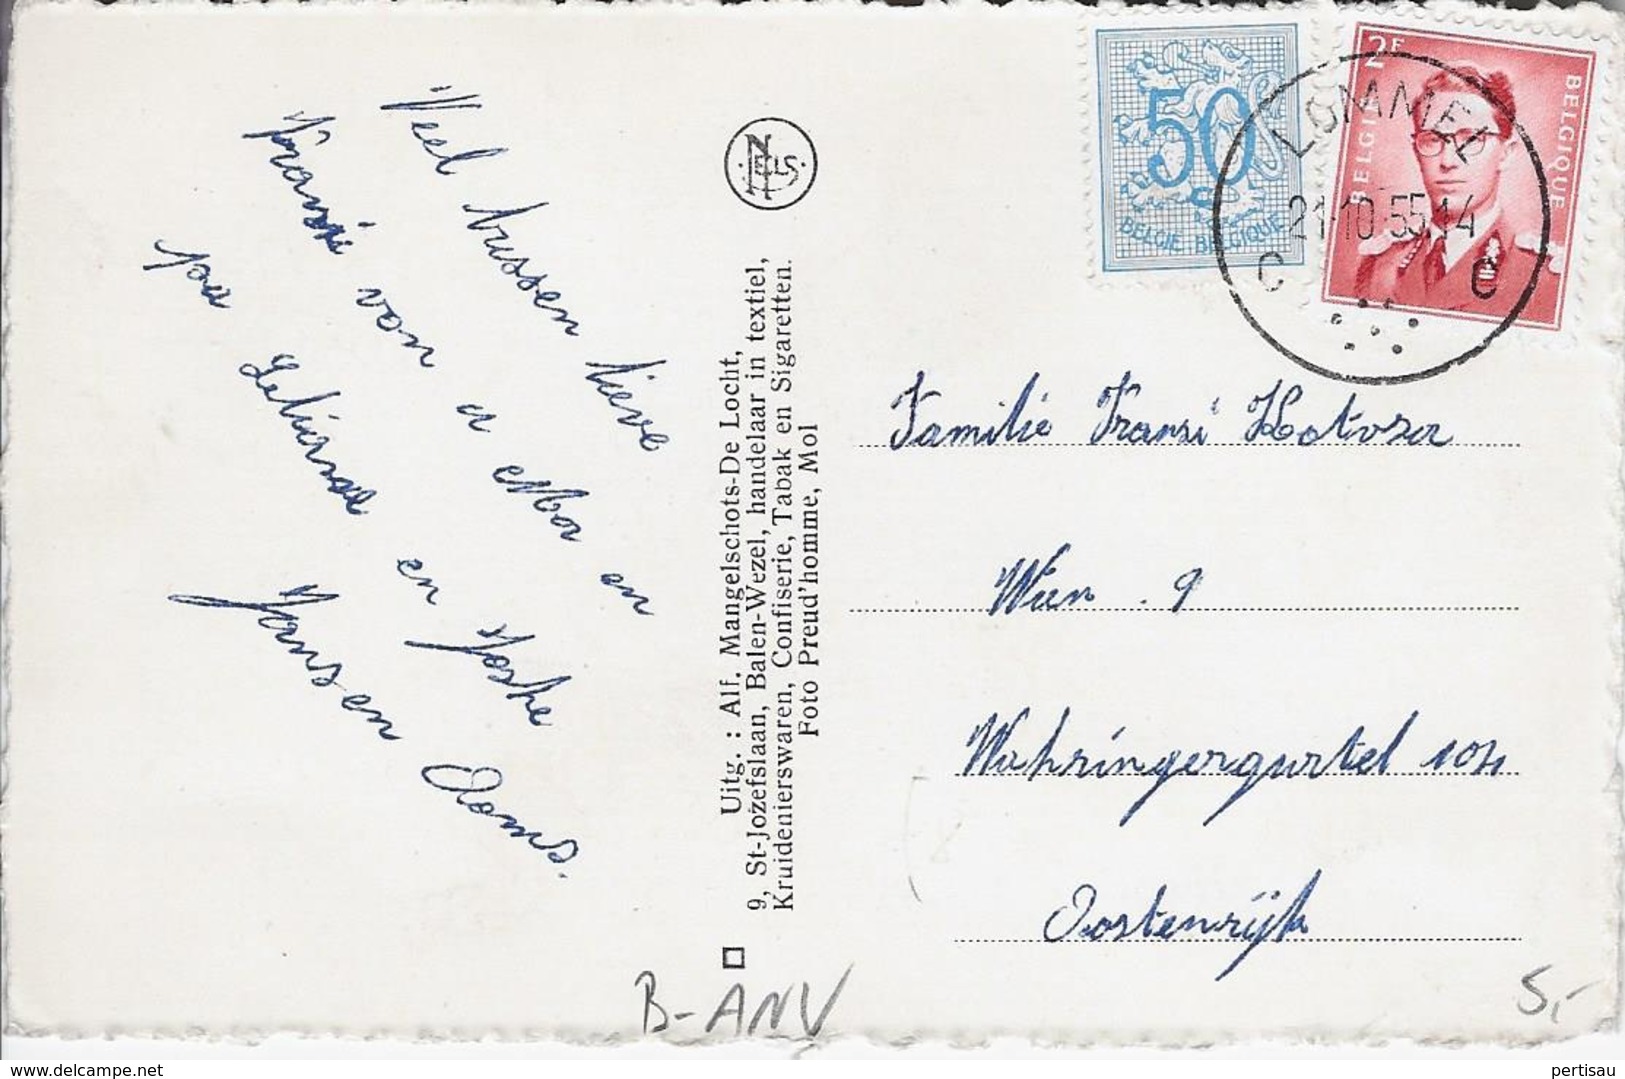 Veel kussen lieve
Fransi van u Ma en
pa en Joske
Jansen Ooms.
NELS
Uitg. : Alf. Mangelschots-De Locht,
9, St-Jozefslaan, Balen-Wezel, handelaar in textiel,
Kruidenierswaren, Confiserie, Tabak en Sigaretten.
Foto Preud'homme, Mol
50
BELGIE BELGIQUE
2F
BELGIE
BELGIQUE
LOMMEL
21-10-55 14
C C
Familie Fransi
Wien . 9
Wahringergurtel 104
Oostenrijk
B-ANV
5,-
https://www.delcampe.net
pertisau